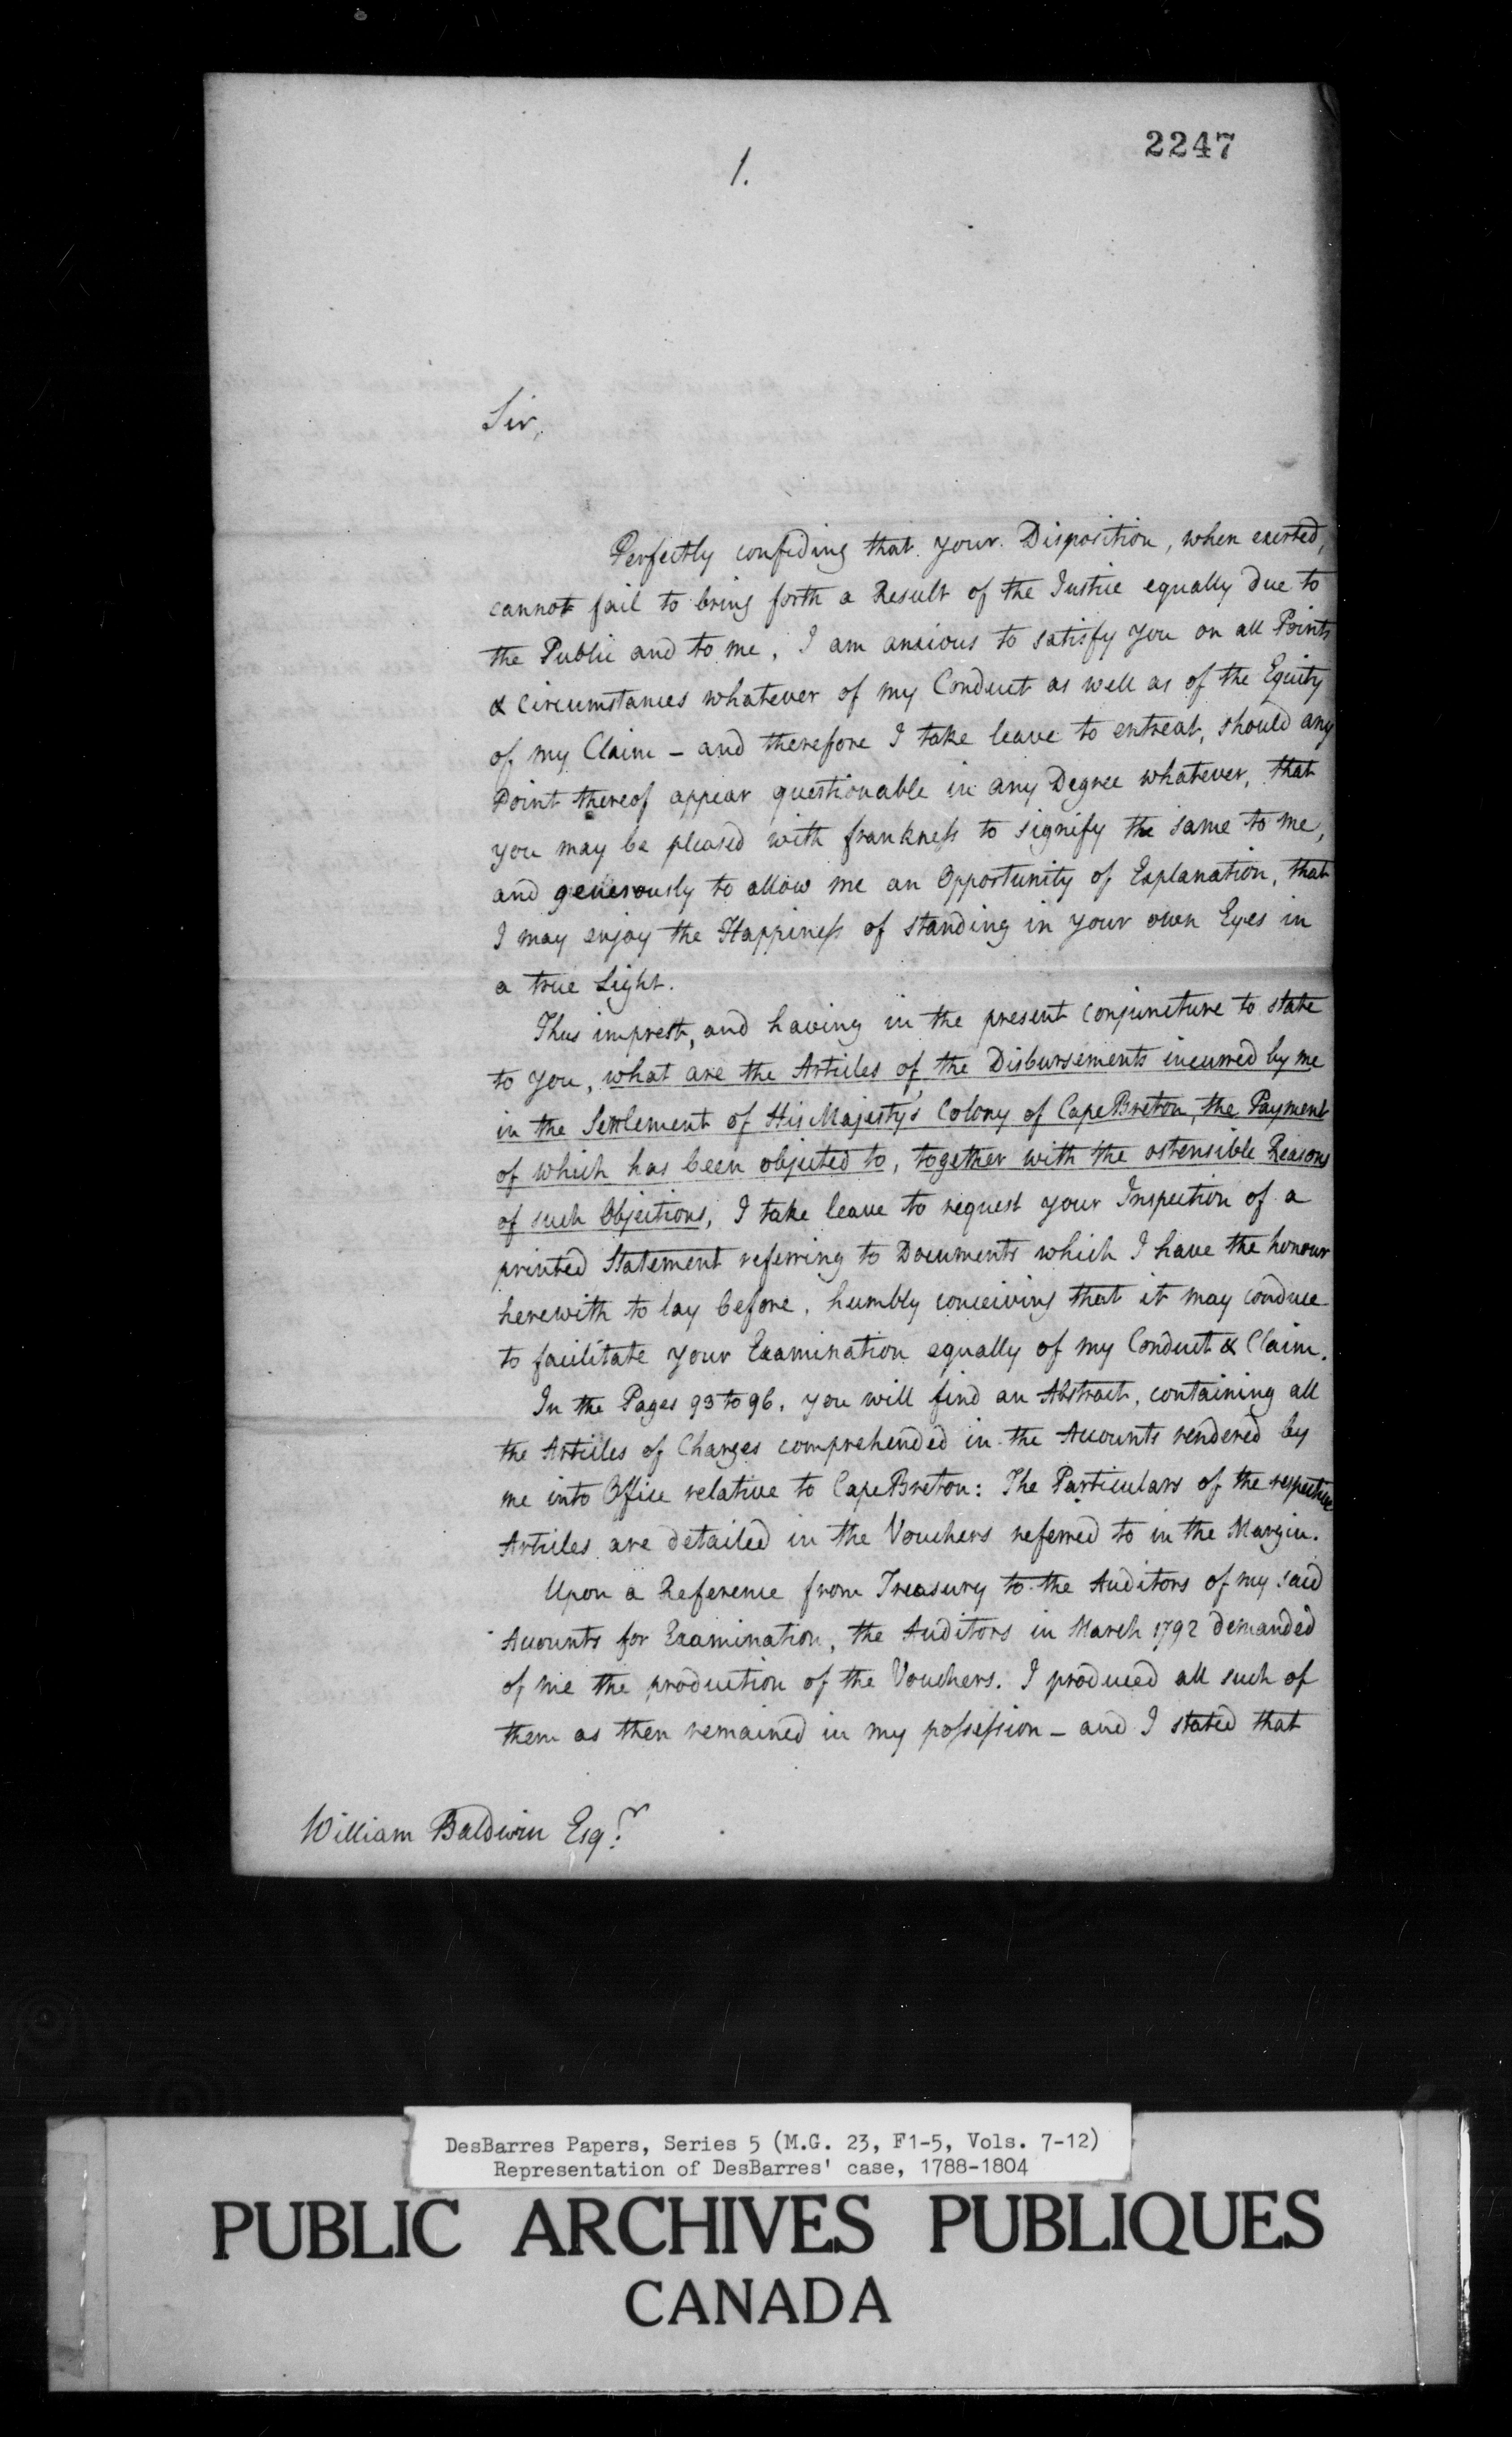 2247
1.
Sir,
Perfectly confiding that your Disposition, when exerted,
cannot fail to bring forth a Result of the Justice equally due to
the Public and to me, I am anxious to satisfy you on all Points
& Circumstances whatever of my Conduct as well as of the Equity
of my Claim – and therefore I take leave to entreat, should any
Point thereof appear questionable in any Degree whatever, that
you may be pleased with frankness to signify the same to me,
and generously to allow me an Opportunity of Explanation, that
I may enjoy the Happiness of standing in your own Eyes in
a true Light.
Thus imprest, and having in the present conjuncture to state
to you, what are the Articles of the Disbursements incurred by me
in the Settlement of His Majesty's Colony of Cape Breton, the Payment
of which has been objected to, together with the ostensible Reasons
of such Objections, I take leave to request your Inspection of a
printed Statement referring to Documents which I have the honour
herewith to lay before, humbly conceiving that it may conduce
to facilitate your Examination equally of my Conduct & Claim.
In the Pages 93 to 96, you will find an Abstract, containing all
the Articles of Charges comprehended in the Accounts rendered by
me into Office relative to Cape Breton: The Particulars of the respective
Articles are detailed in the Vouchers referred to in the Margin.
Upon a Reference from Treasury to the Auditors of my said
Accounts for Examination, the Auditors in March 1792 demanded
of me the production of the Vouchers. I produced all such of
them as then remained in my possession – and I stated that
William Baldwin Esqr.
DesBarres Papers, Series 5 (M.G. 23, F1-5, Vols. 7-12)
Representation of DesBarres' case, 1788-1804
PUBLIC ARCHIVES PUBLIQUES
CANADA